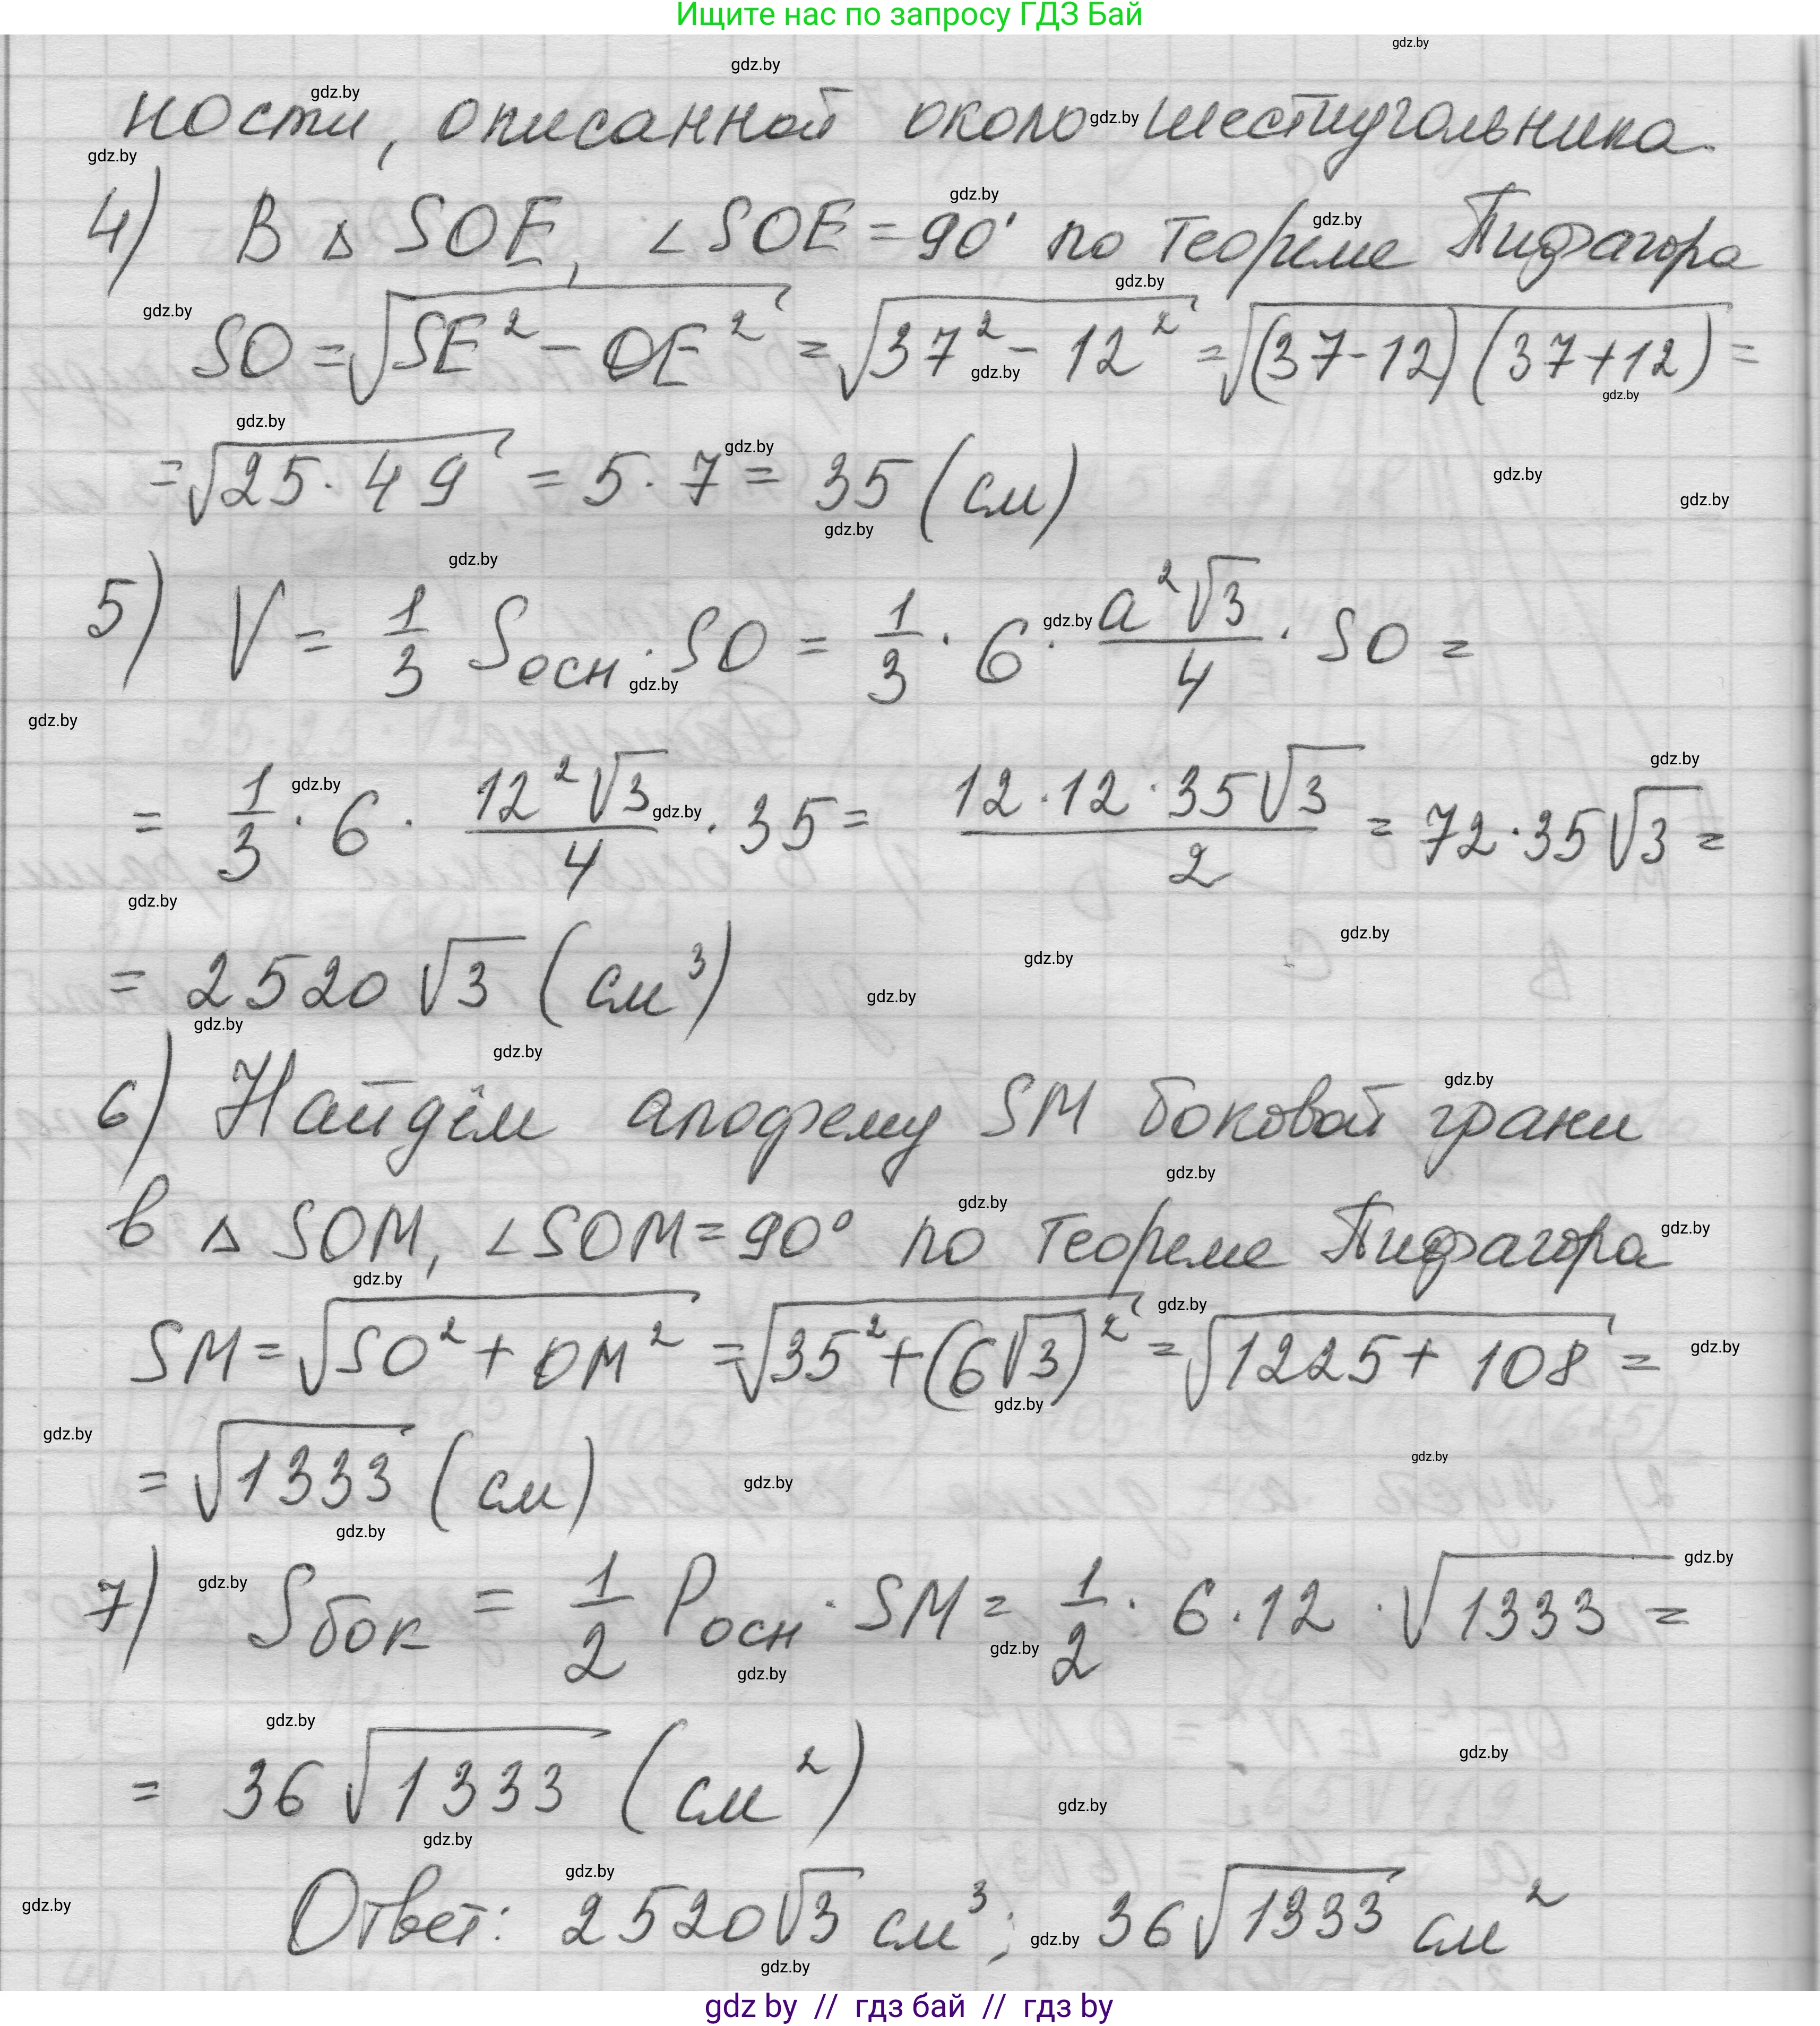 Ищите нас по запросу ГДЗ Бай
ности, описанной около шестиугольника.
4) В △ SOE, ∠SOE = 90° по теореме Пифагора
SO = √(SE² − OE²) = √(37² − 12²) = √((37-12)(37+12)) =
= √(25 · 49) = 5 · 7 = 35 (см)
5) V = 1/3 Sосн · SO = 1/3 · 6 · a²√3/4 · SO =
= 1/3 · 6 · 12²√3/4 · 35 = 12·12·35√3/2 = 72·35√3 =
= 2520√3 (см³)
6) Найдём апофему SM боковой грани
в △ SOM, ∠SOM = 90° по теореме Пифагора
SM = √(SO² + OM²) = √(35² + (6√3)²) = √(1225 + 108) =
= √1333 (см)
7) Sбок = 1/2 Pосн · SM = 1/2 · 6 · 12 · √1333 =
= 36√1333 (см²)
Ответ: 2520√3 см³; 36√1333 см²
gdz by // гдз бай // гдз by